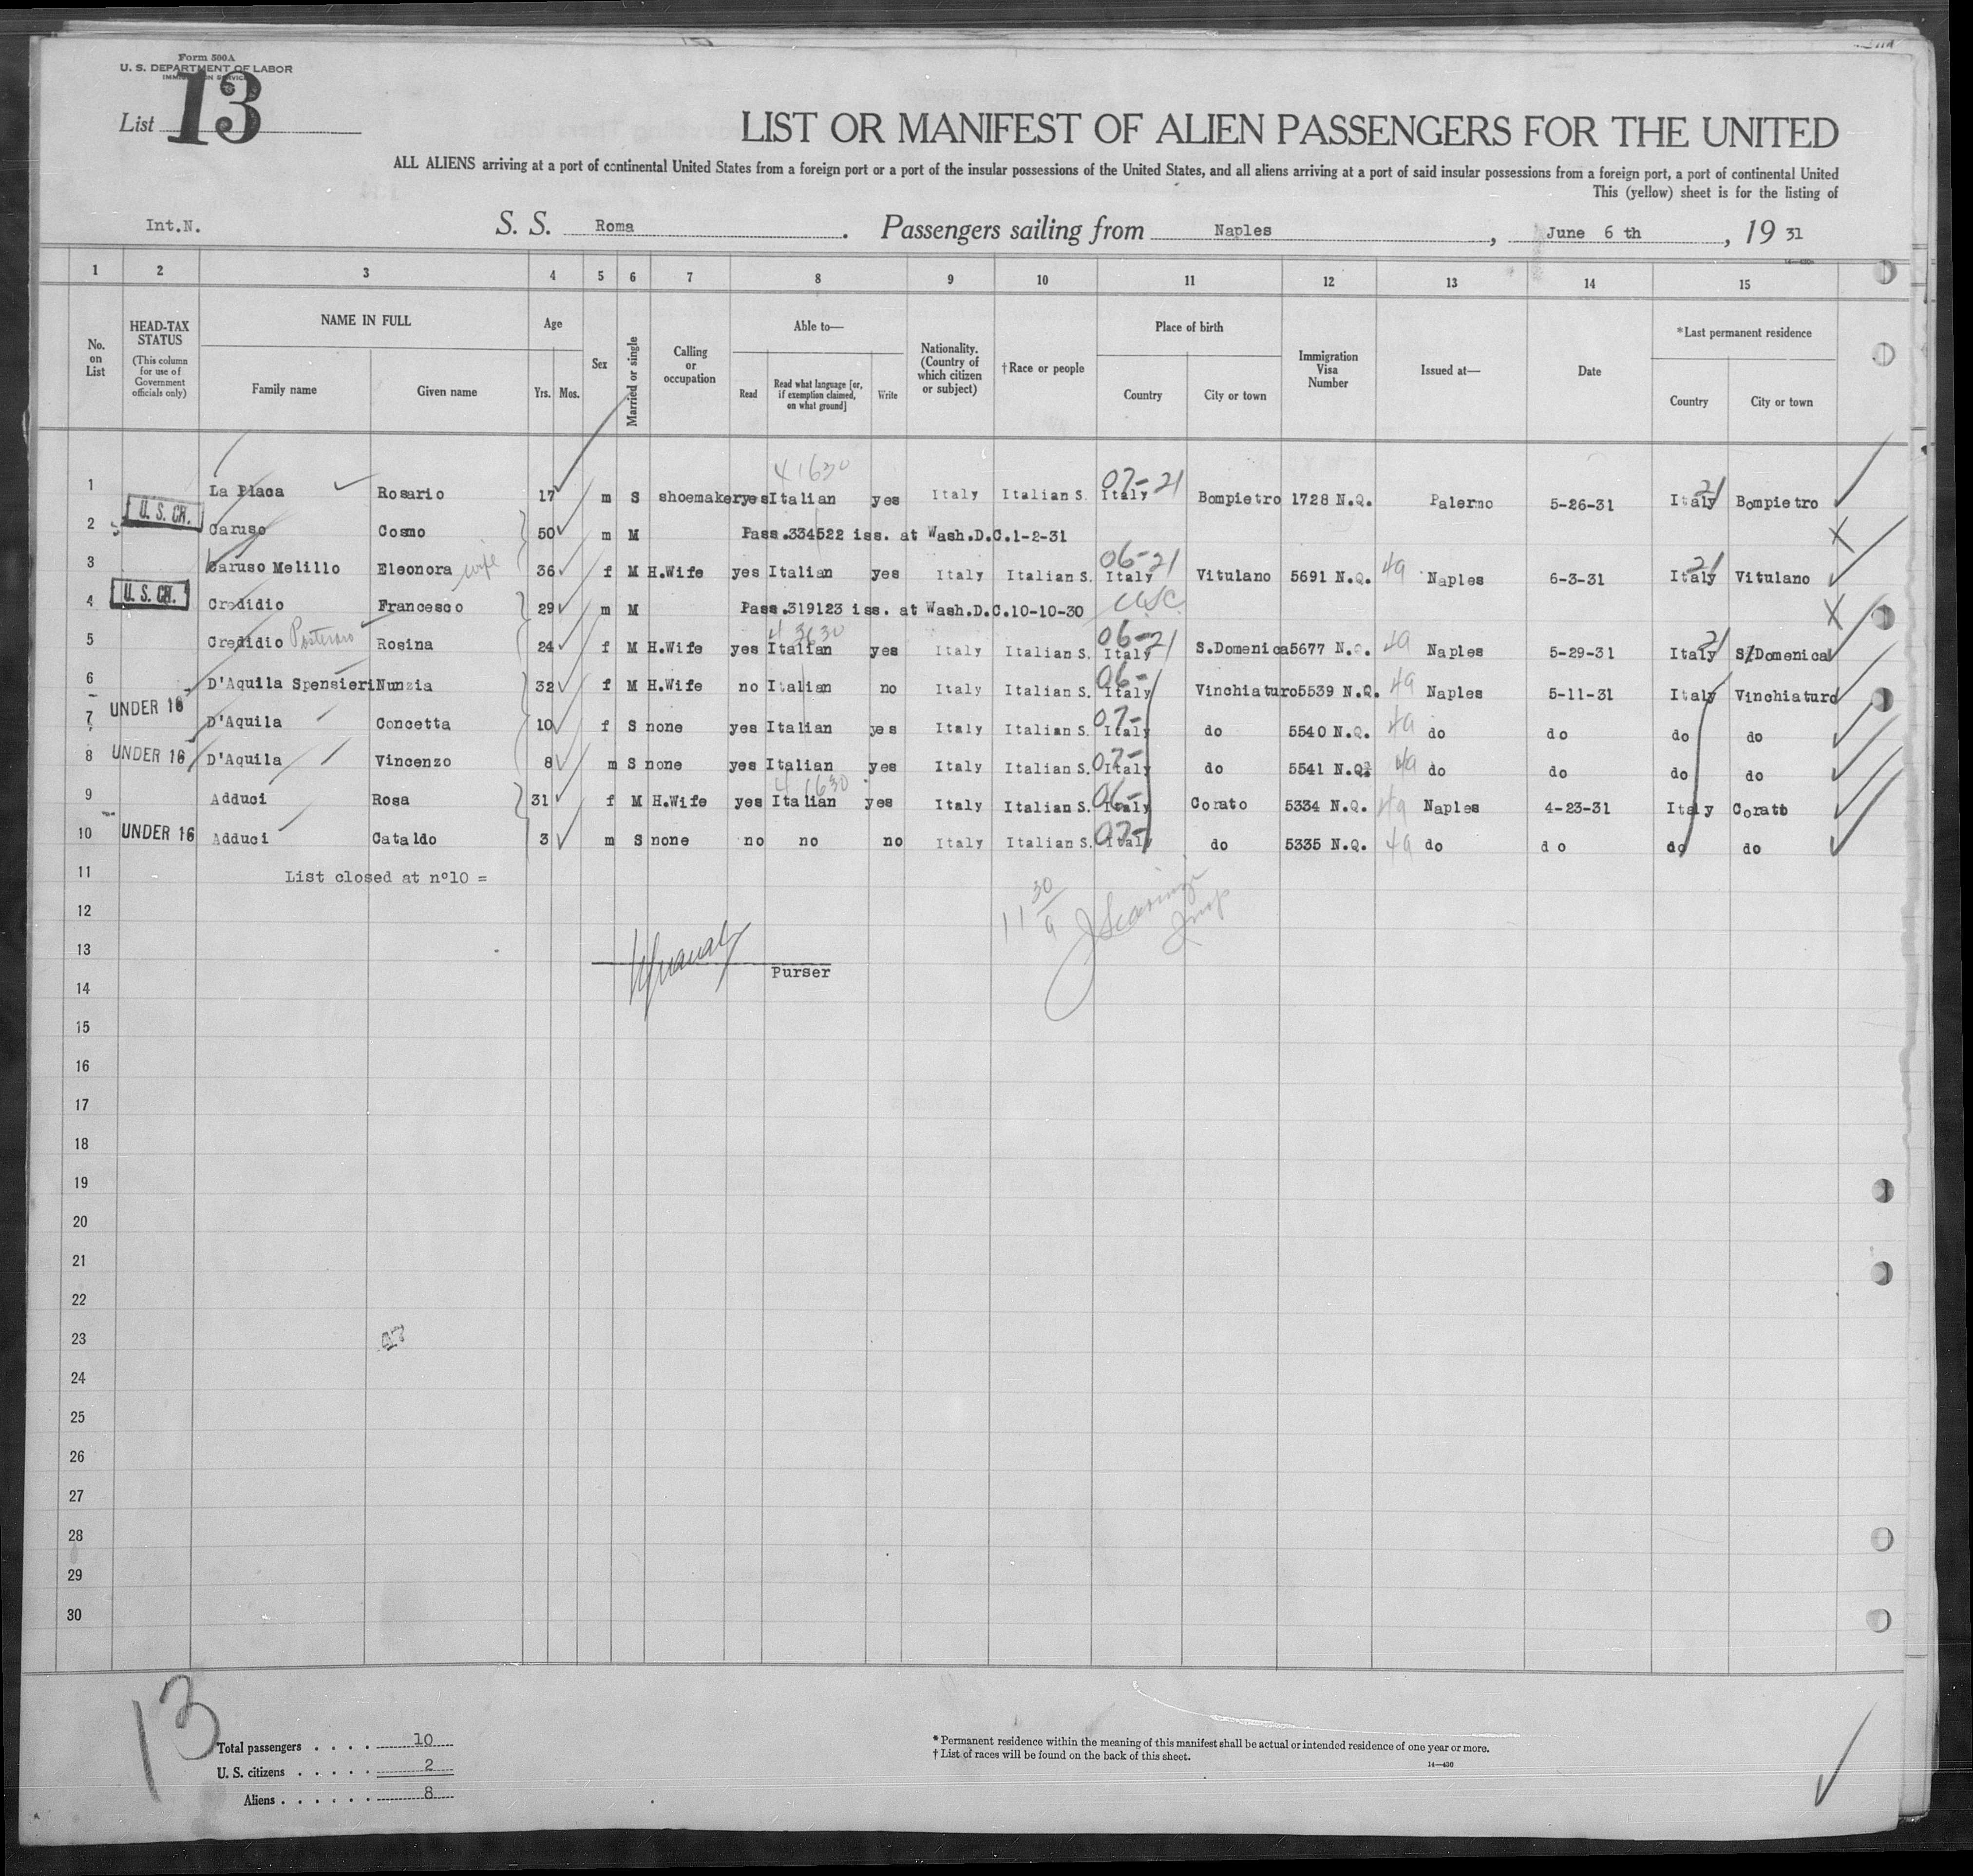 Form 500A
U. S. DEPARTMENT OF LABOR
IMMIGRATION SERVICE
List 13
LIST OR MANIFEST OF ALIEN PASSENGERS FOR THE UNITED
ALL ALIENS arriving at a port of continental United States from a foreign port or a port of the insular possessions of the United States, and all aliens arriving at a port of said insular possessions from a foreign port, a port of continental United
This (yellow) sheet is for the listing of
Int.N. S. S. Roma. Passengers sailing from Naples, June 6 th, 19 31
1 2 3 4 5 6 7 8 9 10 11 12 13 14 15
No. on List
HEAD-TAX STATUS (This column for use of Government officials only)
NAME IN FULL Family name Given name
Age Yrs. Mos.
Sex
Married or single
Calling or occupation
Able to— Read Read what language [or, if exemption claimed, on what ground] Write
Nationality. (Country of which citizen or subject)
†Race or people
Place of birth Country City or town
Immigration Visa Number
Issued at—
Date
*Last permanent residence Country City or town
41630
1 La Placa Rosario 17 m S shoemaker yes Italian yes Italy Italian S. 07-21 Italy Bompietro 1728 N.Q. Palermo 5-26-31 21 Italy Bompietro
2 U. S. CH. Caruso Cosmo 50 m M Pass.334522 iss. at Wash.D.C.1-2-31 X
3 Caruso Melillo Eleonora wife 36 f M H.Wife yes Italian yes Italy Italian S. 06-21 Italy Vitulano 5691 N.Q. 4a Naples 6-3-31 21 Italy Vitulano
4 U. S. CH. Credidio Francesco 29 m M Pass.319123 iss. at Wash.D.C.10-10-30 USC X
5 Credidio Rosina 24 f M H.Wife yes Italian yes Italy Italian S. 06-21 Italy S.Domenica 5677 N.Q. 4a Naples 5-29-31 21 Italy S.Domenica
6 D'Aquila Spensieri Nunzia 32 f M H.Wife no Italian no Italy Italian S. 06- Italy Vinchiaturo 5539 N.Q. 4a Naples 5-11-31 Italy Vinchiaturo
7 UNDER 16 D'Aquila Concetta 10 f S none yes Italian yes Italy Italian S. 07- Italy do 5540 N.Q. 4a do do do do
8 UNDER 16 D'Aquila Vincenzo 8 m S none yes Italian yes Italy Italian S. 07- Italy do 5541 N.Q. 4a do do do do
41630
9 Adduci Rosa 31 f M H.Wife yes Italian yes Italy Italian S. 06- Italy Corato 5334 N.Q. 4a Naples 4-23-31 Italy Corato
10 UNDER 16 Adduci Cataldo 3 m S none no no no Italy Italian S. 07- Italy do 5335 N.Q. 4a do do do do
11 List closed at nº10 =
12
13
Purser
14
15
16
17
18
19
20
21
22
23
24
25
26
27
28
29
30
13
Total passengers . . . . 10
U. S. citizens . . . . . 2
Aliens . . . . . . 8
* Permanent residence within the meaning of this manifest shall be actual or intended residence of one year or more.
† List of races will be found on the back of this sheet.
14—430